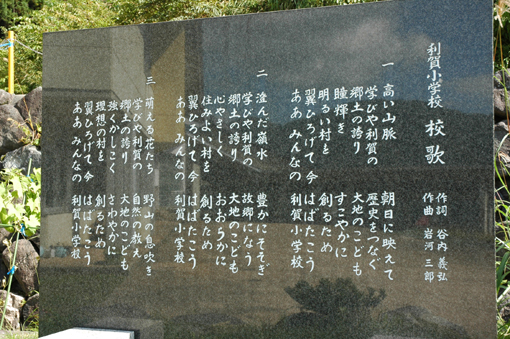 利賀小学校 校歌
作詞 谷内 義弘
作曲 岩河 三郎
一 高い山脈 朝日に映えて
学びや利賀の 歴史をつなぐ
郷土の誇り 大地のこども
瞳輝き すこやかに
明るい村を 創るため
翼ひろげて今 はばたこう
ああ みんなの 利賀小学校
二 澄んだ嶺水 豊かにそそぎ
学びや利賀の 故郷になう
郷土の誇り 大地のこども
心やさしく おおらかに
住みよい村を 創るため
翼ひろげて今 はばたこう
ああ みんなの 利賀小学校
三 萌える花たち 野山の息吹き
学びや利賀の 自然の教え
郷土の誇り 大地のこども
強くゆかしく さわやかに
理想の村を 創るため
翼ひろげて今 はばたこう
ああ みんなの 利賀小学校